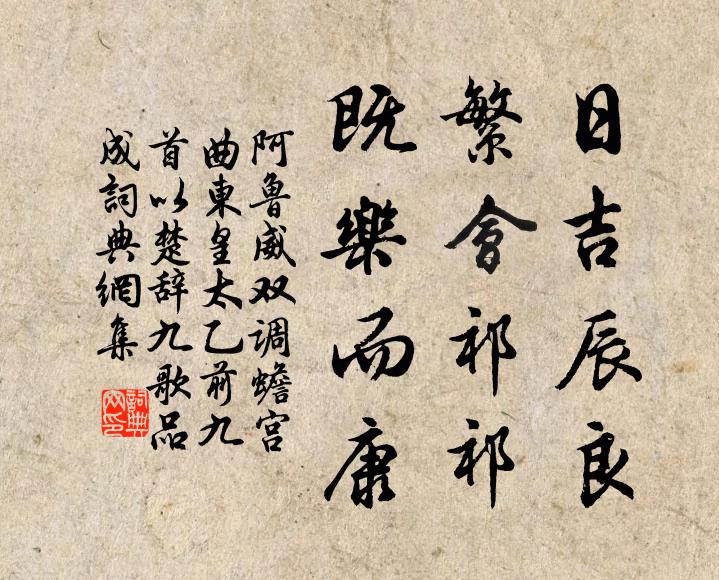 日吉辰良
繁會祁祁
既樂而康
阿魯威双调蟾宫
曲東皇太乙前九
首以楚辞九歌品
成詞典網集
詞典
网印